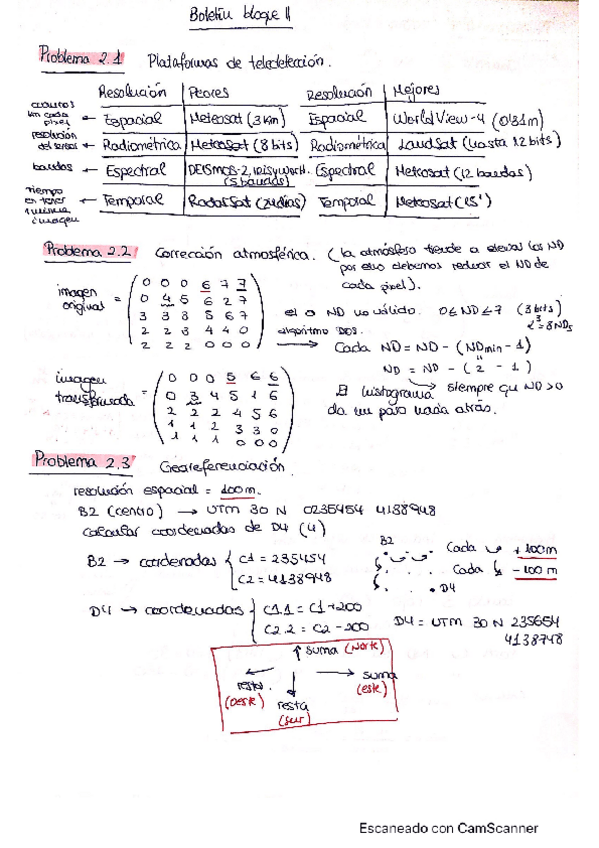 Boletín bloque II
Problema 2.1 Plataformas de teledetección.
Resolución Peores Resolución Mejores
cuantos km cada pixel ← Espacial Meteosat (3km) Espacial WorldView-4 (0'31m)
resolución del sensor ← Radiométrica Meteosat (8 bits) Radiométrica Landsat (hasta 12 bits)
bandas ← Espectral DEISMOS-2, (5 bandas) Espectral Meteosat (12 bandas)
Tiempo en tener 1 misma imagen ← Temporal RadarSat (24 días) Temporal Meteosat (15')
Problema 2.2 Corrección atmosférica. (la atmósfera tiende a elevar los ND
por eso debemos reducir el ND de
cada pixel).
imagen original =
0 0 0 6 7 7
0 4 5 6 2 7
3 3 3 5 6 7
2 2 3 4 4 0
2 2 2 0 0 0
el 0 ND no válido. 0≤ND≤7 (3 bits)
2³=8NDs
algoritmo DOS.
→ Cada ND = ND - (NDmin - 1)
ND = ND - (2 - 1)
siempre que ND>0
El histograma
da un paso hacia atrás.
imagen transformada =
0 0 0 5 6 6
0 3 4 5 1 6
2 2 2 4 5 6
1 1 2 3 3 0
1 1 1 0 0 0
Problema 2.3 Georeferenciación.
resolución espacial = 100m.
B2 (centro) → UTM 30 N 0235454 4138948
Calcular coordenadas de D4 (4)
B2 → coordenadas { C1 = 235454
C2 = 4138948
B2
Cada + 100m
Cada - 100 m
D4
D4 → coordenadas { C1.1 = C1+200
C2.2 = C2-200
D4 = UTM 30 N 235654
4138748
↑ suma (Norte)
resta (Oeste) ← → suma (este)
↓ resta (sur)
Escaneado con CamScanner